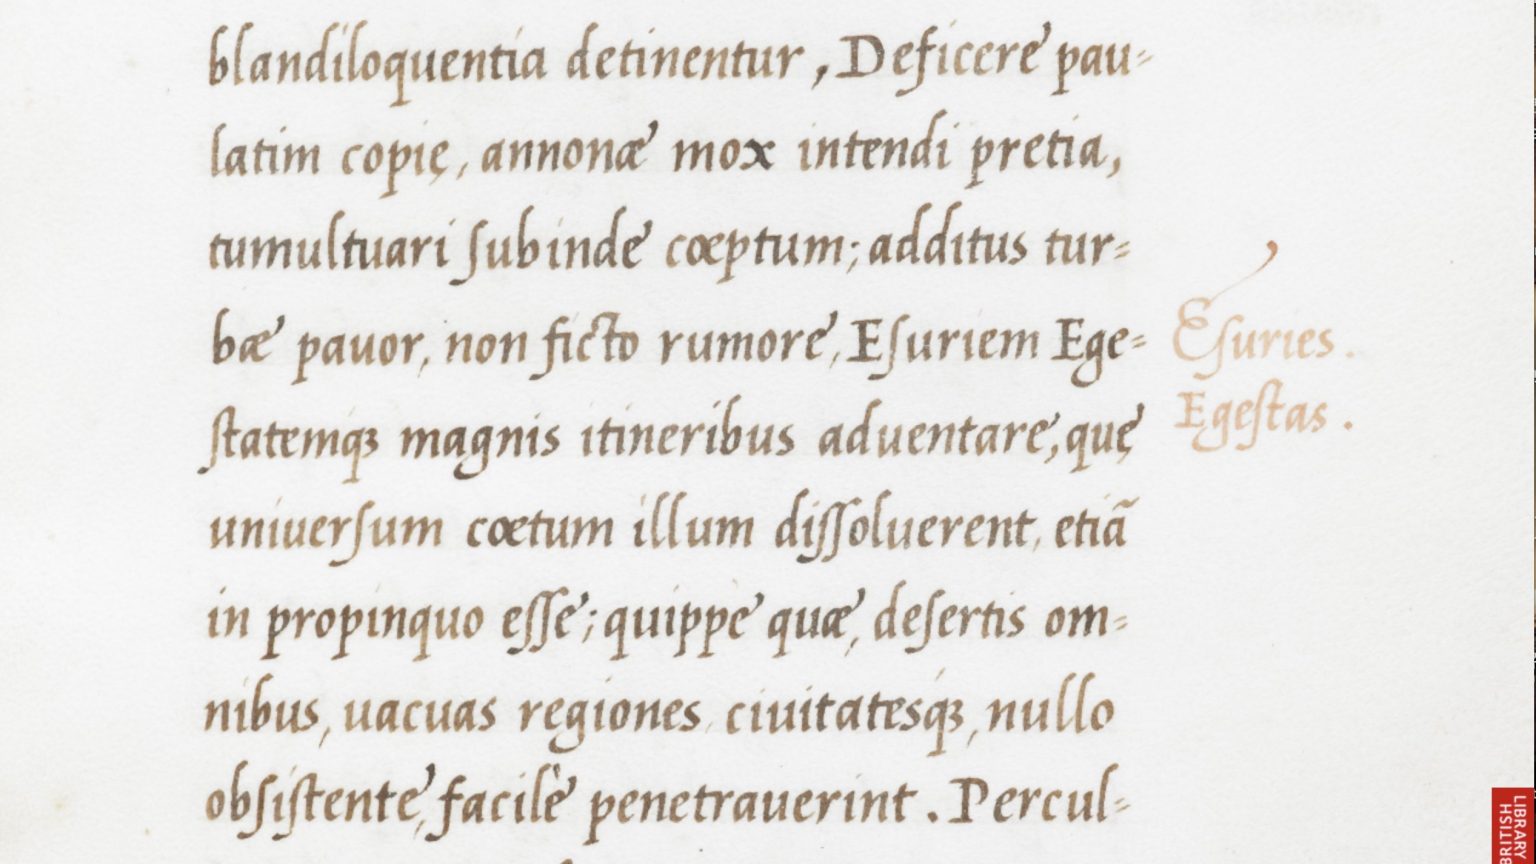 blandiloquentia detinentur, Deficere pau=
latim copię, annonæ mox intendi pretia,
tumultuari ſubinde cœptum; additus tur=
bæ pauor, non ficto rumore, Eſuriem Ege=
ſtatemqꝫ magnis itineribus aduentare, quę
uniuerſum cœtum illum diſſoluerent, etiã
in propinquo eſſe; quippe quæ, deſertis om=
nibus, uacuas regiones, ciuitatesqꝫ, nullo
obſiſtente, facilè penetrauerint. Percul=
Eſuries.
Egeſtas.
BRITISH
LIBRARY